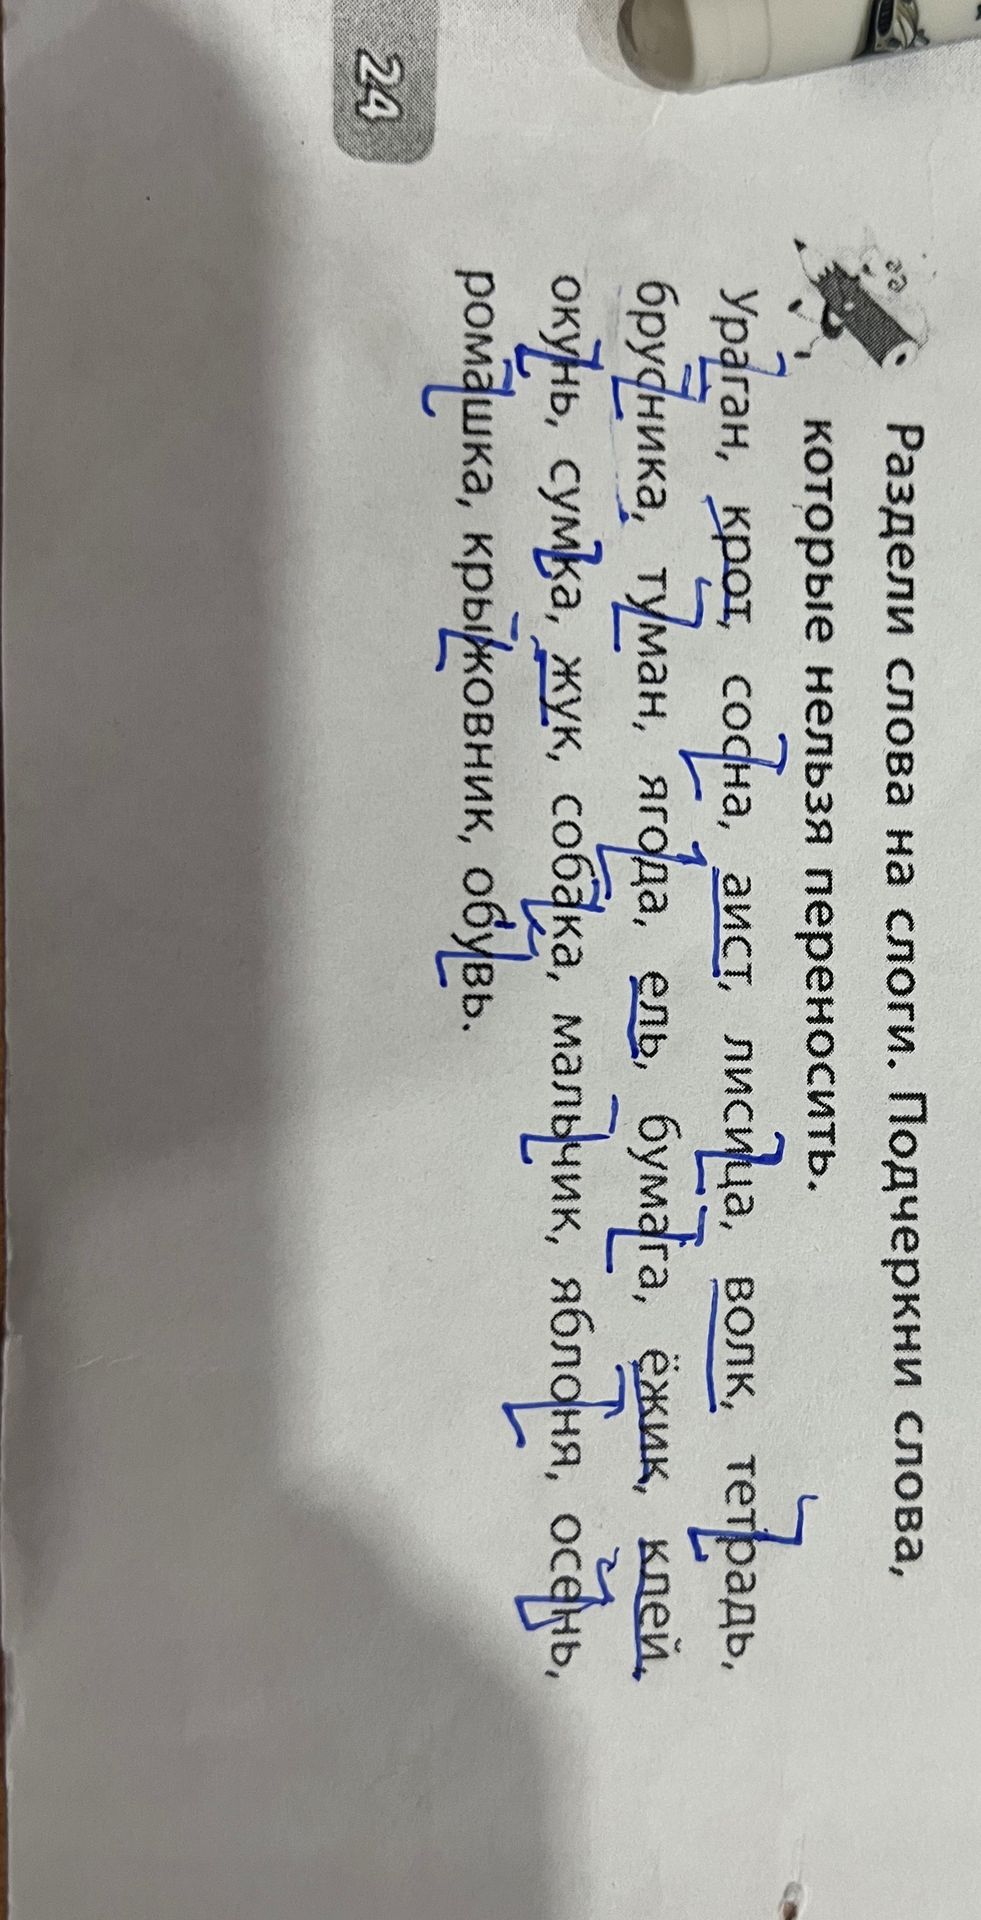 Раздели слова на слоги. Подчеркни слова,
которые нельзя переносить.
Ураган, крот, сосна, аист, лисица, волк, тетрадь,
брусника, туман, ягода, ель, бумага, ёжик, клей,
окунь, сумка, жук, собака, мальчик, яблоня, осень,
ромашка, крыжовник, обувь.
24